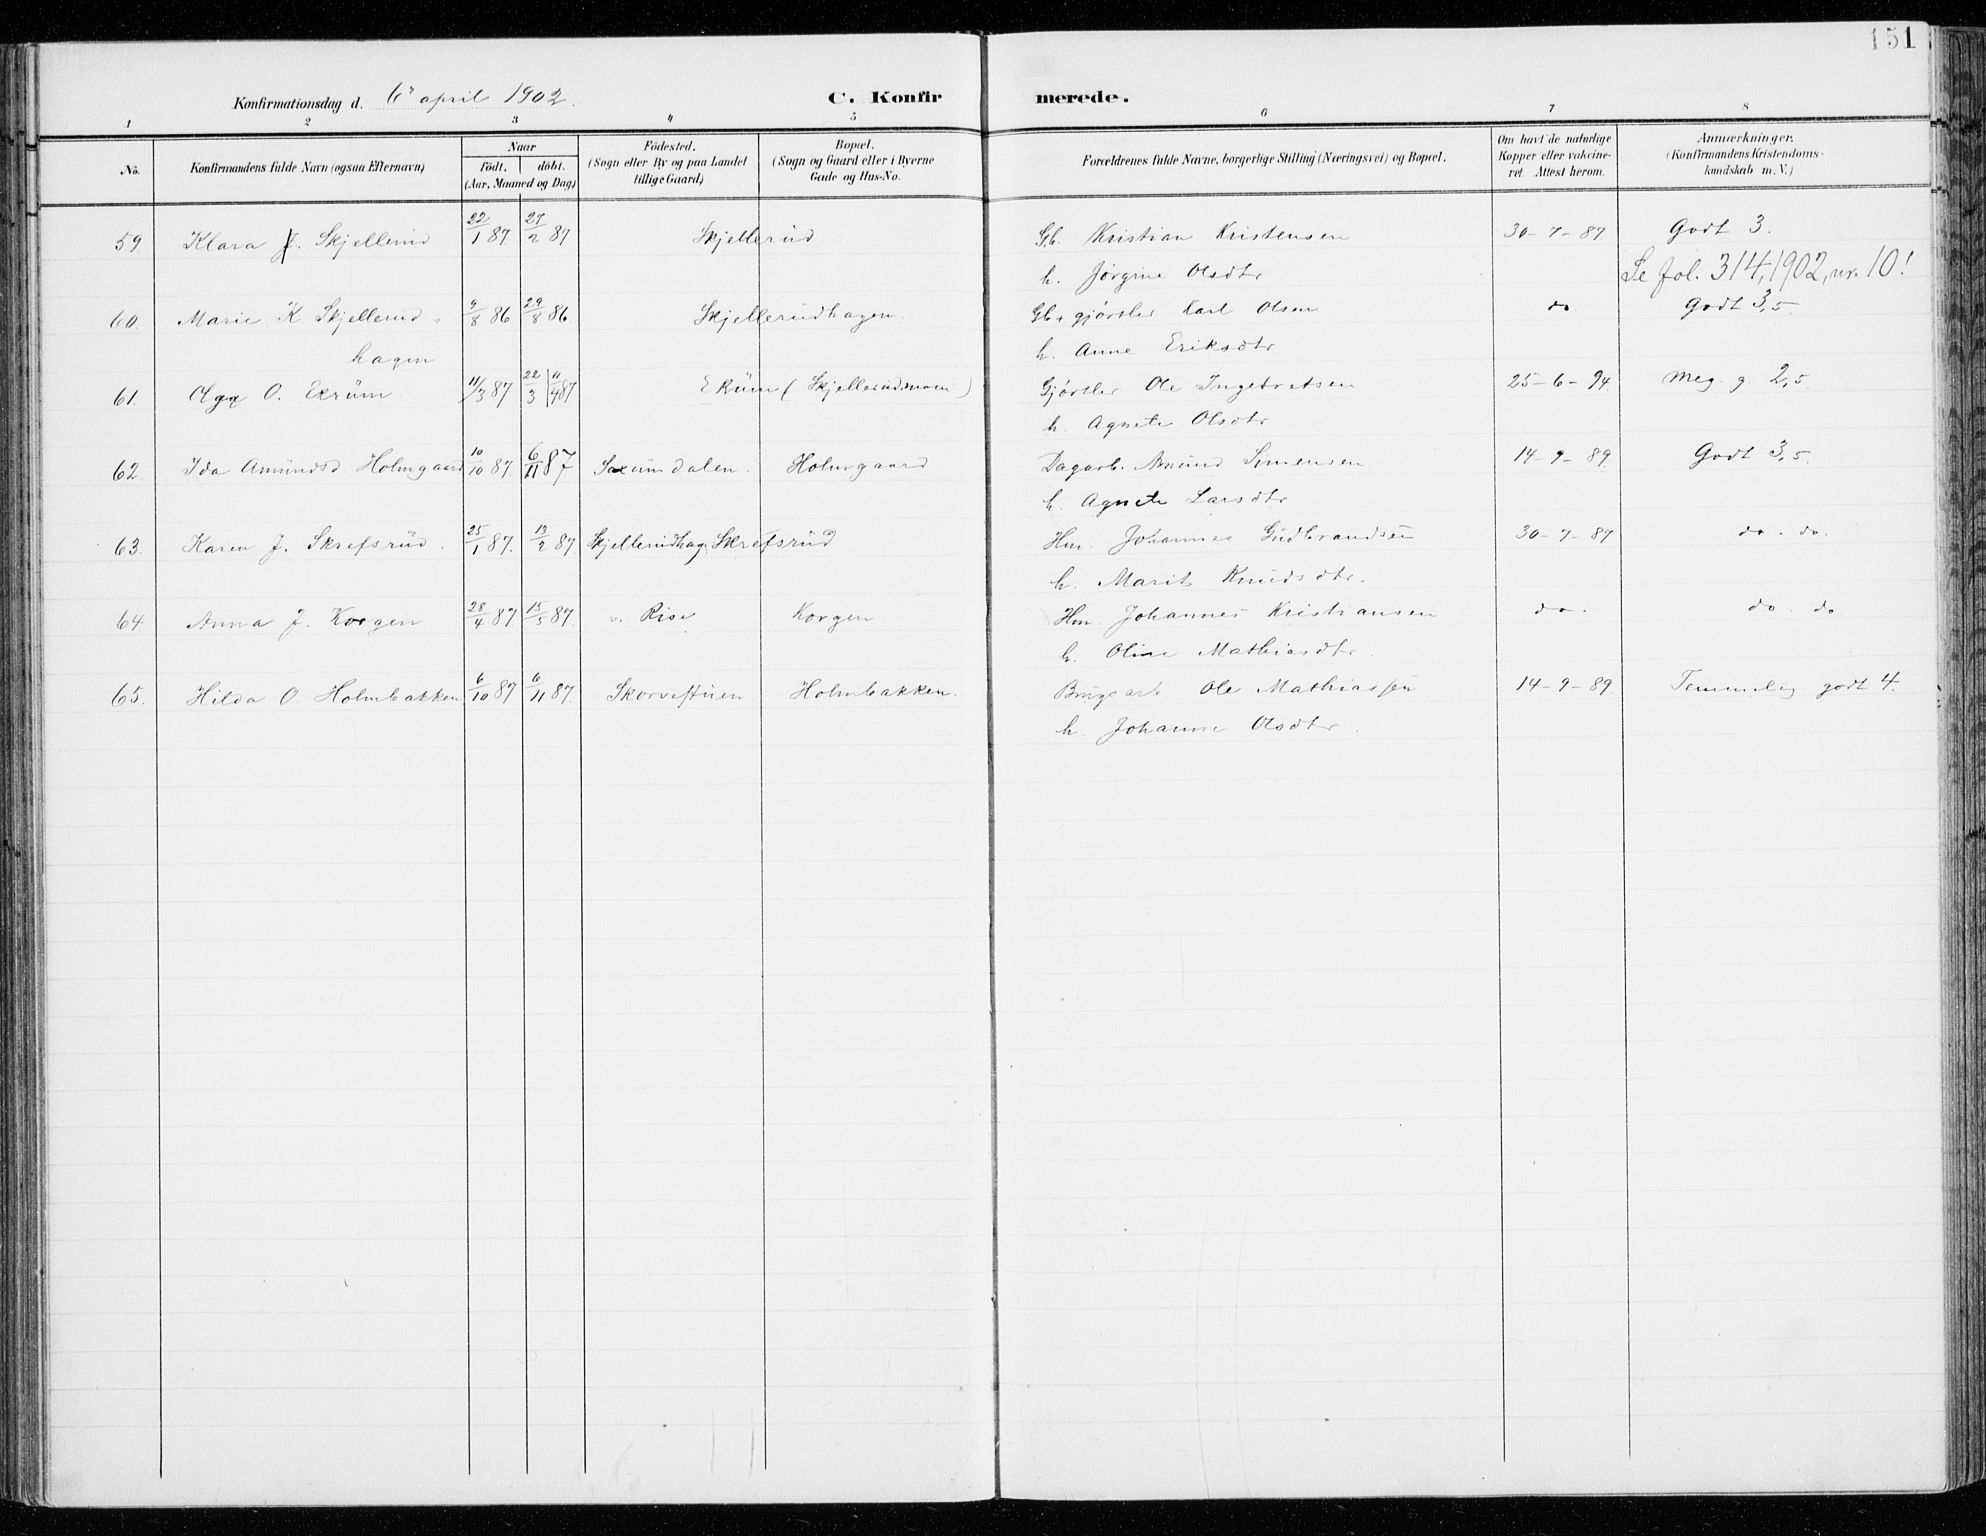 151
Konfirmationsdag d. 6' april 1902. C. Konfirmerede.
1 2 3 4 5 6 7 8
No. Konfirmandens fulde Navn (ogsaa Efternavn) Naar Födt. döbt. (Aar, Maaned og Dag) Födested. (Sogn eller By og paa Landet tillige Gaard) Bopæl. (Sogn og Gaard eller i Byerne Gade og Hus-No. Forældrenes fulde Navne, borgerlige Stilling (Næringsvei) og Bopæl. Om havt de naturlige Kopper eller vakcineret. Attest herom. Anmærkninger. (Konfirmandens Kristendomskundskab m. V.)
59 Klara J. Skjellerud 22/1 87. 27/2 87 Skjellerud Gb. Kristian Kristensen 30-7-87 Godt 3.
h. Jørgine Olsdtr Se fol. 314, 1902, nr. 10!
60. Marie K Skjellerud- 9/8 86 29/8 86. Skjellerudhagen. Gb. gjørtler Karl Olsen do. Godt 3,5.
hagen h. Anne Eriksdtr
61. Olga O. Ekrum 11/3 87 22/3 11/4 87. Ekrum (Skjellerudmoen) Gjørtler Ole Ingebretsen 25-6-94. Meg. g. 2,5.
h. Agnete Olsdtr
62. Ida Amundsd. Holmgaard 10/10 87 6/11 87 Saxumdalen. Holmgaard Dagarb. Amund Simensen 14-9-89. Godt 3,5.
h. Agnete Larsdtr
63. Karen J. Skrefsrud. 25/1 87. 13/2 87 Skjellerudhag. Skrefsrud Hm. Johannes Gudbrandsen 30-7-87 do. do.
h. Marit Knudsdtr.
64. Anna J. Korgen 28/4 87 15/5 87. v. Rise Korgen Hm. Johannes Kristiansen do. do. do
h. Oline Mathiasdtr.
65. Hilda O. Holmbakken 6/10 87 6/11 87. Skorvestuen Holmbakken. Brugsarb. Ole Mathiassen 14-9-89. Temmelig godt 4.
h. Johanne Olsdtr.